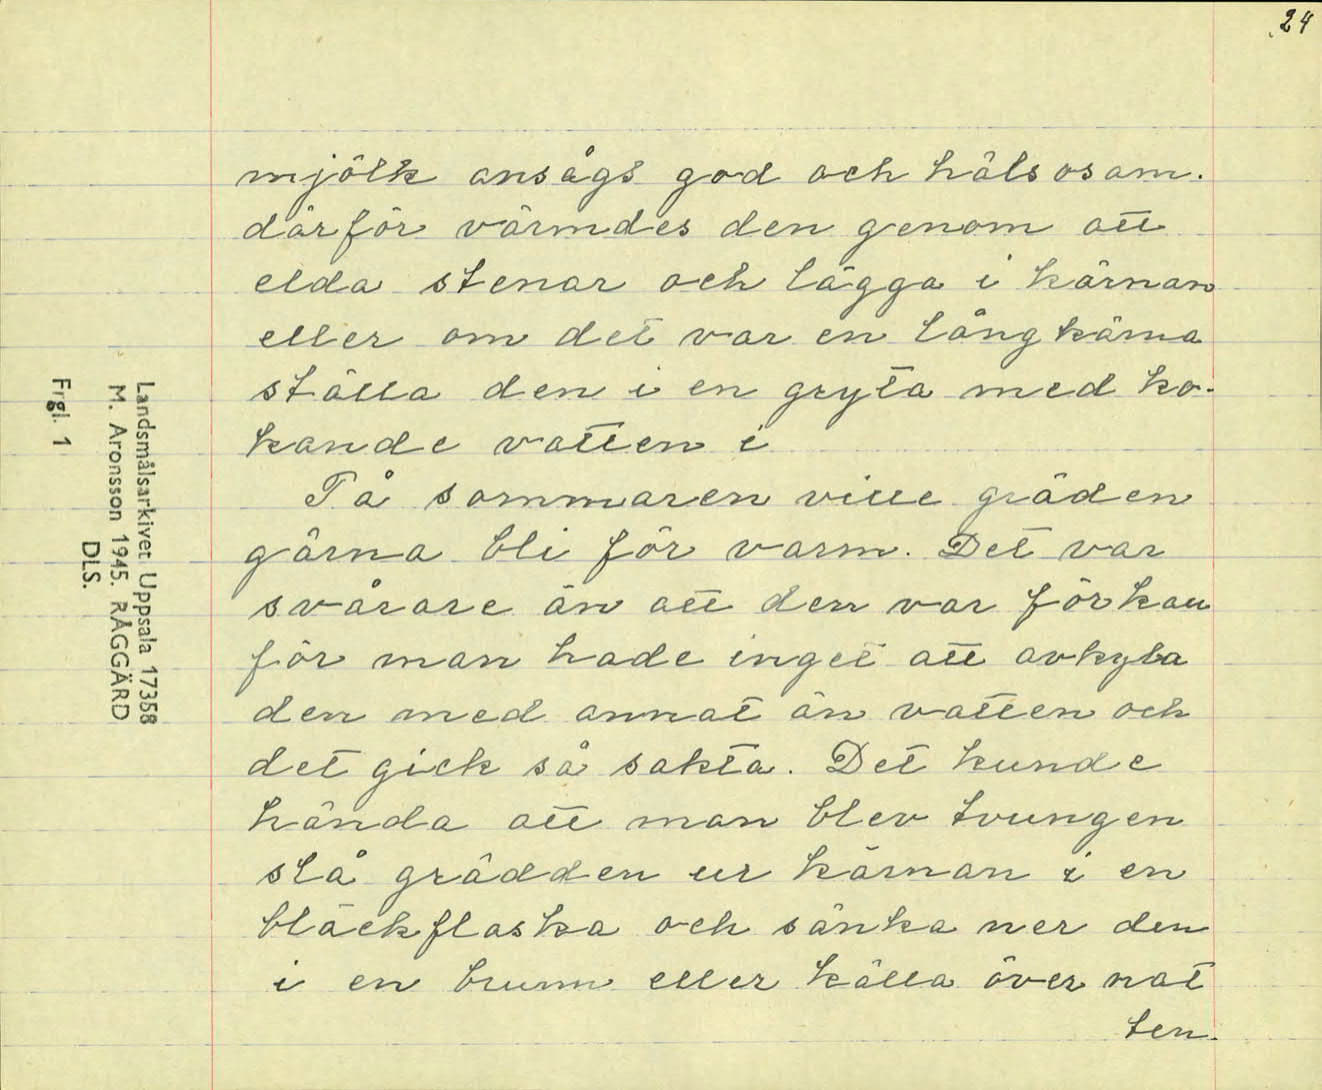 24
mjölk ansågs god och hälsosam.
därför värmdes den genom att
elda stenar och lägga i kärnan
eller om det var en långkärna
ställa den i en gryta med ko-
kande vatten i
På sommaren ville gräden
gärna bli för varm. Det var
svårare än att den var för kall
för man hade inget att avkyla
den med annat än vatten och
det gick så sakta. Det kunde
hända att man blev tvungen
slå grädden ur kärnan i en
bläckflaska och sänka ner den
i en brunn eller källa över nat
ten.
Landsmålsarkivet Uppsala 17358
M. Aronsson 1945. RÅGGÄRD
DLS.
Frgl. 1